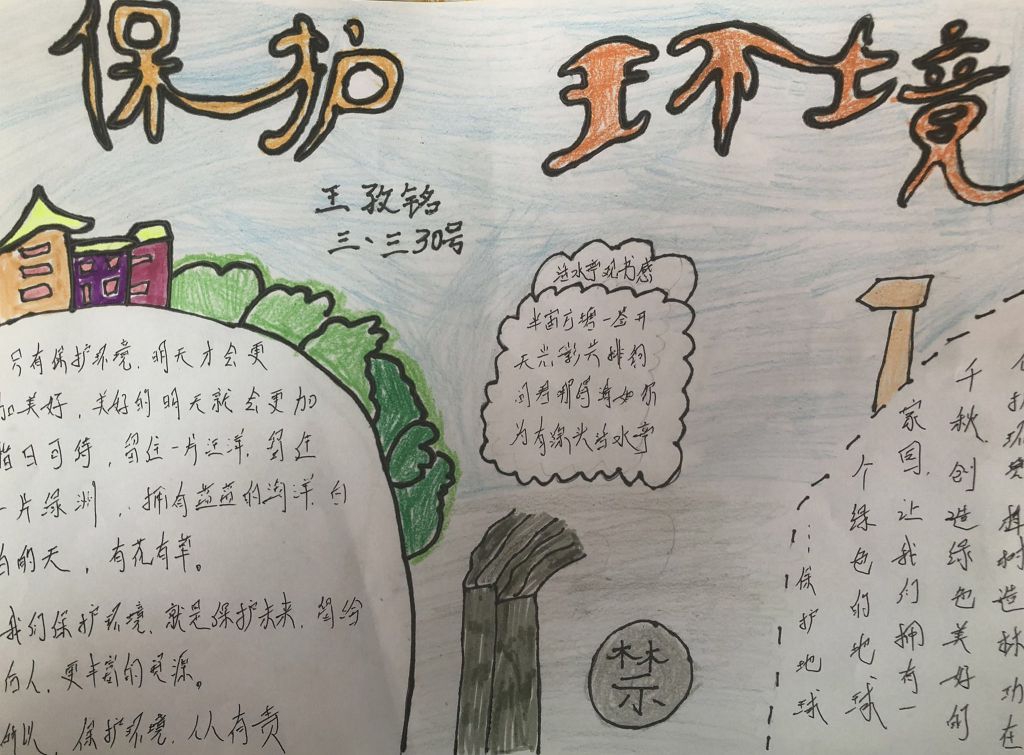 保护 环境
王孜铭
三、三 30号
只有保护环境,明天才会更
加美好,美好的明天就会更加
指日可待,留住一片远洋,留住
一片绿洲,,拥有蓝蓝的海洋,白
白的天,有花有草。
我们保护环境,就是保护未来,留给
后人,更丰富的资源。
所以,保护环境,人人有责
活水亭观书感
半亩方塘一鉴开
天光影共
那得清如
为有源头活水亭
禁
环境植树造林功在
千秋,创造绿色美好的
家园,让我们拥有一
个绿色的地球
……保护地球